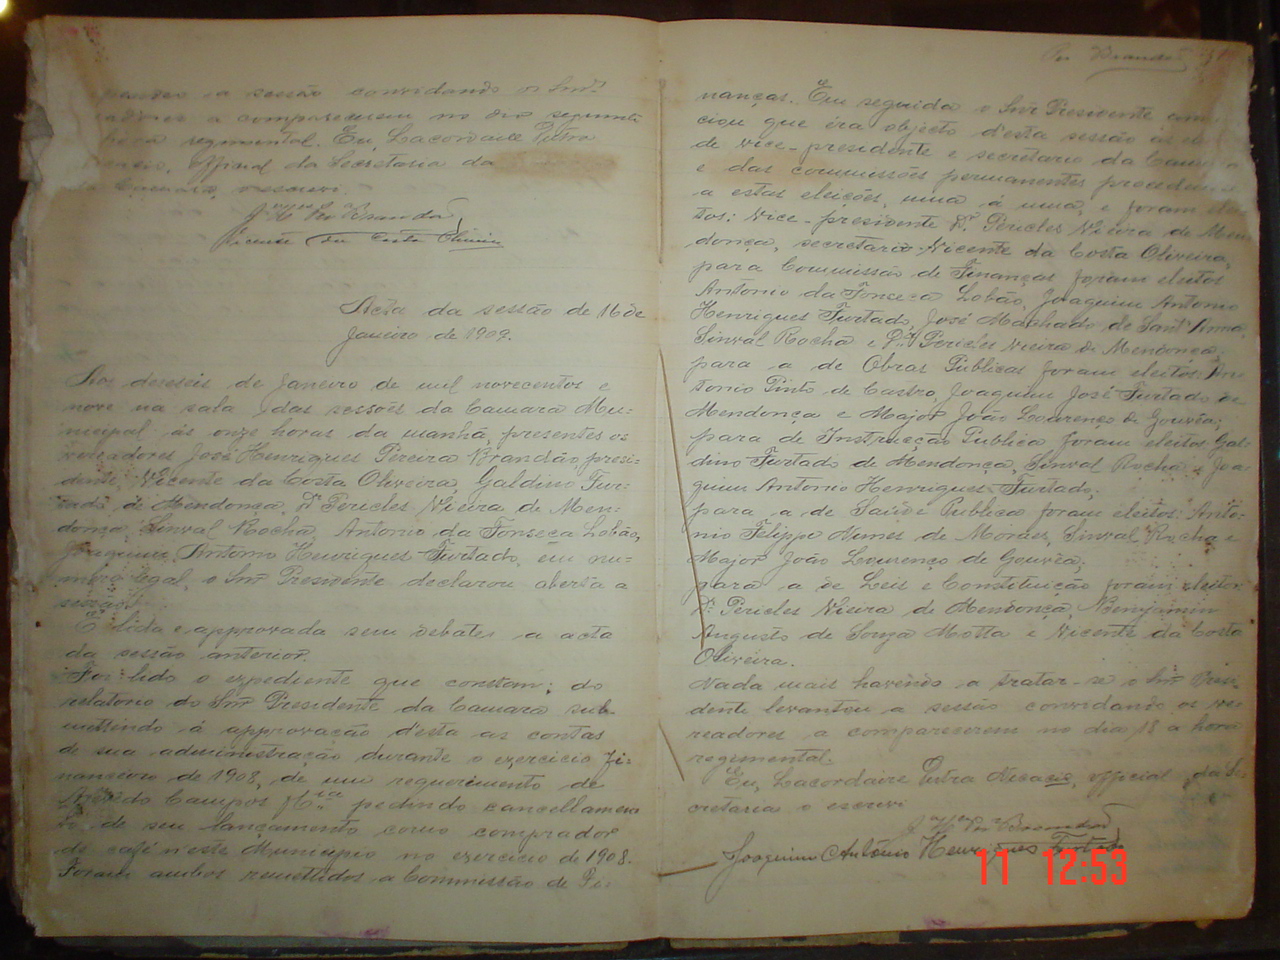 a sessão convidando os Snrs.
a comparecerem no dia seguinte
hora regimental. Eu, Lacordaire Pietra
official da Secretaria da
Camara o escrevi.
Jé Hes Pra Brandão
Vicente da Costa Oliveira
Acta da sessão de 16 de
Janeiro de 1909.
Aos deseseis de Janeiro de mil novecentos e
nove na sala das sessões da Camara Mu-
nicipal ás onze horas da manhã, presentes os
vereadores José Henriques Pereira Brandão, presi-
dente, Vicente da Costa Oliveira, Galdino Fur-
tado de Mendonça, Dr. Pericles Vieira de Men-
donça, Sinval Rocha, Antonio da Fonseca Lobão,
Joaquim Antonio Henriques Furtado, em nu-
mero legal, o Snr. Presidente declarou aberta a
sessão.
É lida e approvada sem debate a acta
da sessão anterior.
Foi lido o expediente que constam: do
relatorio do Snr. Presidente da Camara sub-
mettindo á approvação d'esta as contas
de sua administração durante o exercicio fi-
nanceiro de 1908, de um requerimento de
Azevedo Campos & Cia. pedindo cancellamen
to de seu lançamento como comprador
de café n'este Municipio no exercicio de 1908.
Foram ambos remettidos a Commissão de Fi-
Pra Brandão
nanças. Em seguida o Snr. Presidente annun
ciou que era objecto d'esta sessão as
de vice-presidente e secretario da Camara
e das commissões permanentes
a estas eleições, uma á uma, e foram elei
tos: Vice-presidente Dr. Pericles Vieira de Men-
donça, secretario Vicente da Costa Oliveira,
para Commissão de Finanças foram eleitos
Antonio da Fonseca Lobão, Joaquim Antonio
Henriques Furtado, José Machado de Sant'Anna
Sinval Rocha e Dr. Pericles Vieira de Mendonça;
para a de Obras Publicas foram eleitos: An-
tonio Pinto de Castro, Joaquim José Furtado de
Mendonça e Major João Lourenço de Gouvêa;
para de Instrucção Publica foram eleitos Gal-
dino Furtado de Mendonça, Sinval Rocha e Joa-
quim Antonio Henriques Furtado;
para a de Saúde Publica foram eleitos: Anto-
nio Felippe Nunes de Moraes, Sinval Rocha e
Major João Lourenço de Gouvêa;
para a de Leis e Constituição foram eleitos:
Dr. Pericles Vieira de Mendonça, Benjamin
Augusto de Souza Motta e Vicente da Costa
Oliveira.
Nada mais havendo a tratar-se o Snr. Presi-
dente levantou a sessão convidando os ve-
readores a comparecerem no dia 18 a hora
regimental.
Eu, Lacordaire Pietra official da Se-
cretaria o escrevi
Jé Hes Pra Brandão
Joaquim Antônio Henriques Furtado
11 12:53